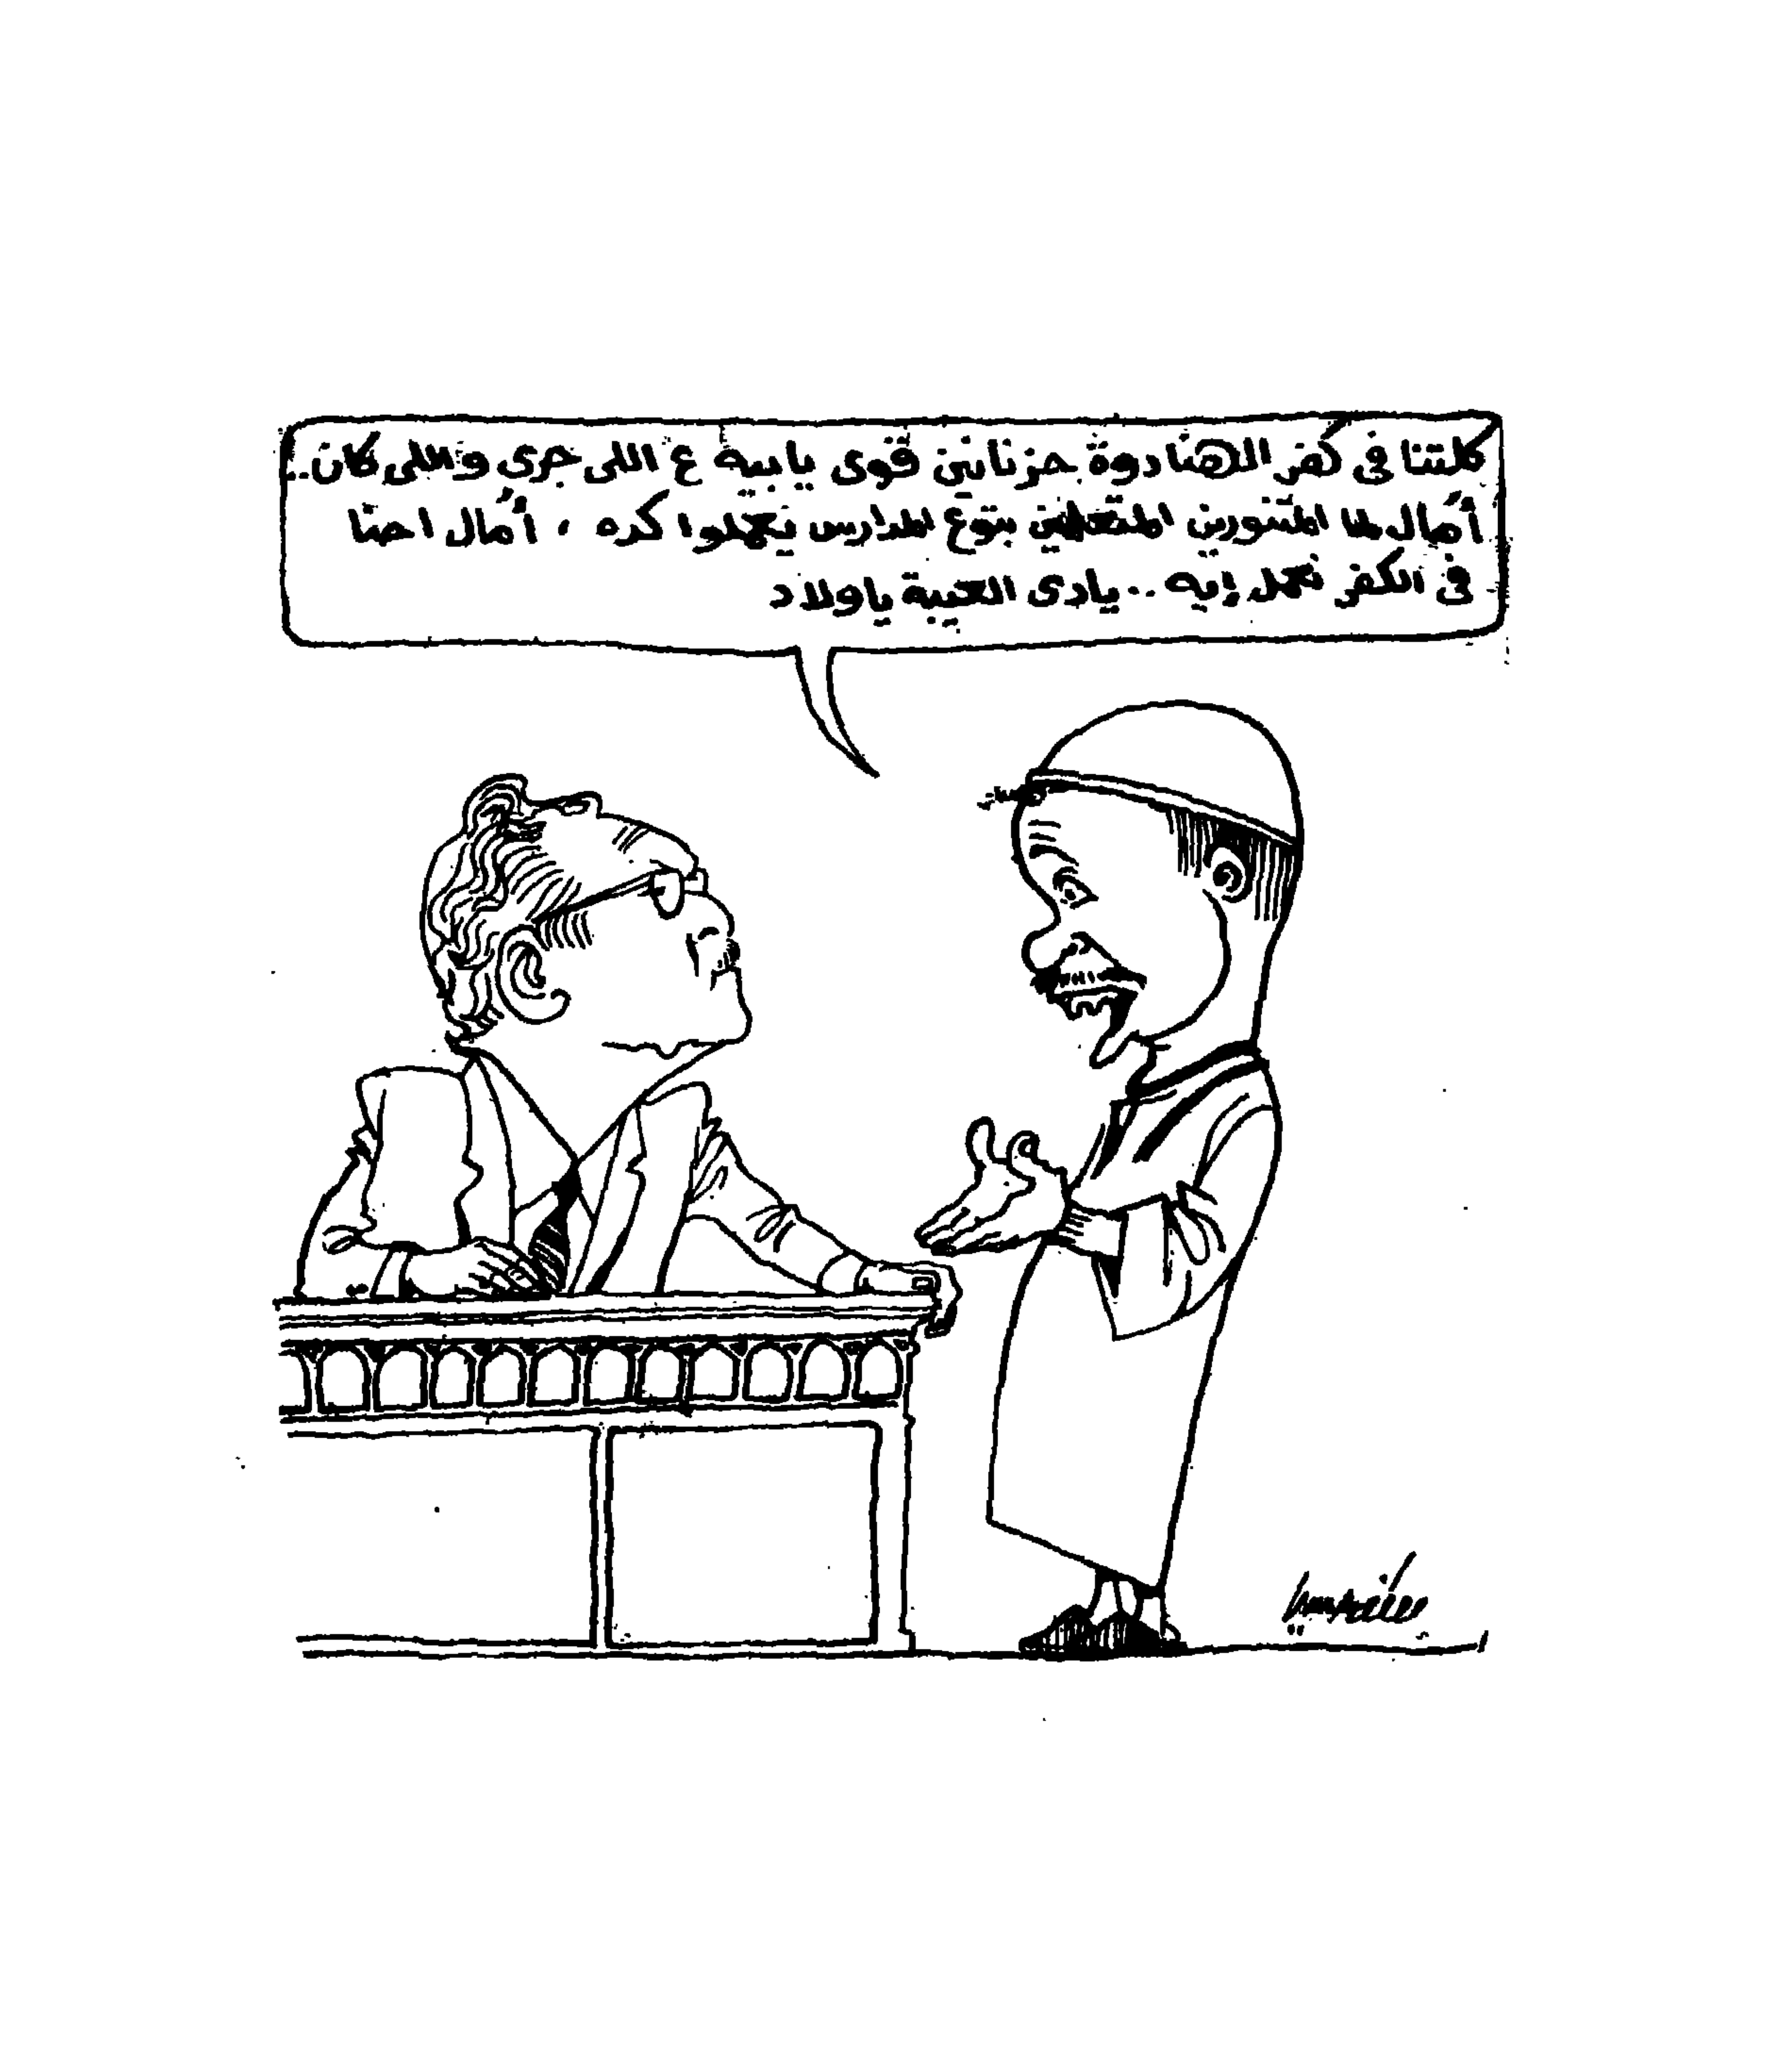 كلتنا فى كفر الهنادوة حزنانين قوى يابيه ع اللى جرى واللى كان..
أمال لما المتنورين المتعلمين بتوع المدارس يعملوا كده ، أمال احنا
فى الكفر نعمل إيه .. يادى العيبة ياولاد